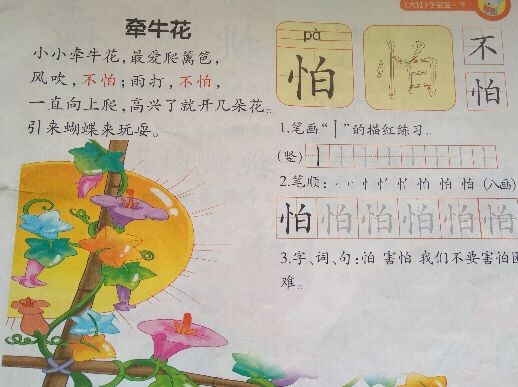 牵牛花
小小牵牛花，最爱爬篱笆，
风吹，不怕；雨打，不怕，
一直向上爬，高兴了就开几朵花。
引来蝴蝶来玩耍。
pà
怕
不
怕
1.笔画“丨”的描红练习。
(竖)
2.笔顺： 怕 怕 (八画)
怕 怕 怕 怕 怕 怕
3.字、词、句：怕 害怕 我们不要害怕困
难。